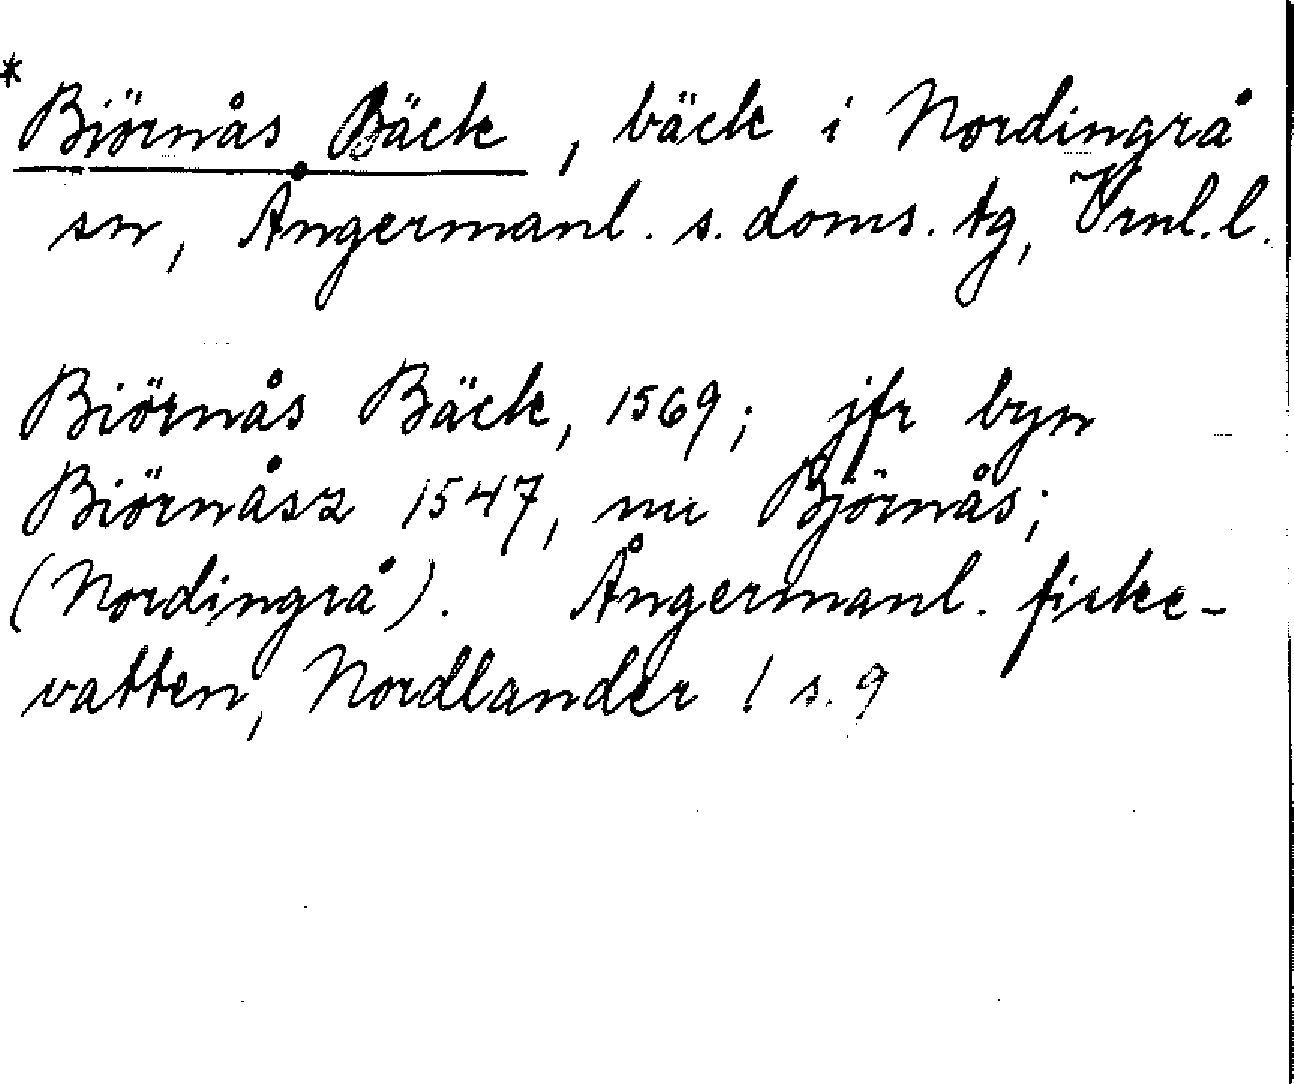 * Biörnås Bäck, bäck i Nordingrå
sn, Ångermanl. s. doms. tg, Vrnl. l.
Biörnås Bäck, 1569; jfr byn
Biörnåsz 1547, nu Björnås;
(Nordingrå). Ångermanl. fiske-
vatten, Nordlander 1 s. 9